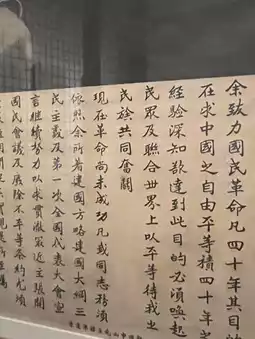 余致力國民革命凡四十年其目
在求中國之自由平等積四十年之
經驗深知欲達到此目的必須喚起
民眾及聯合世界上以平等待我之
民族共同奮鬪
現在革命尚未成功凡我同志務須
依照余所著建國方略建國大綱三
民主義及第一次全國代表大會宣
言繼續努力以求貫澈最近主張開
國民會議及廢除不平等條約尤須